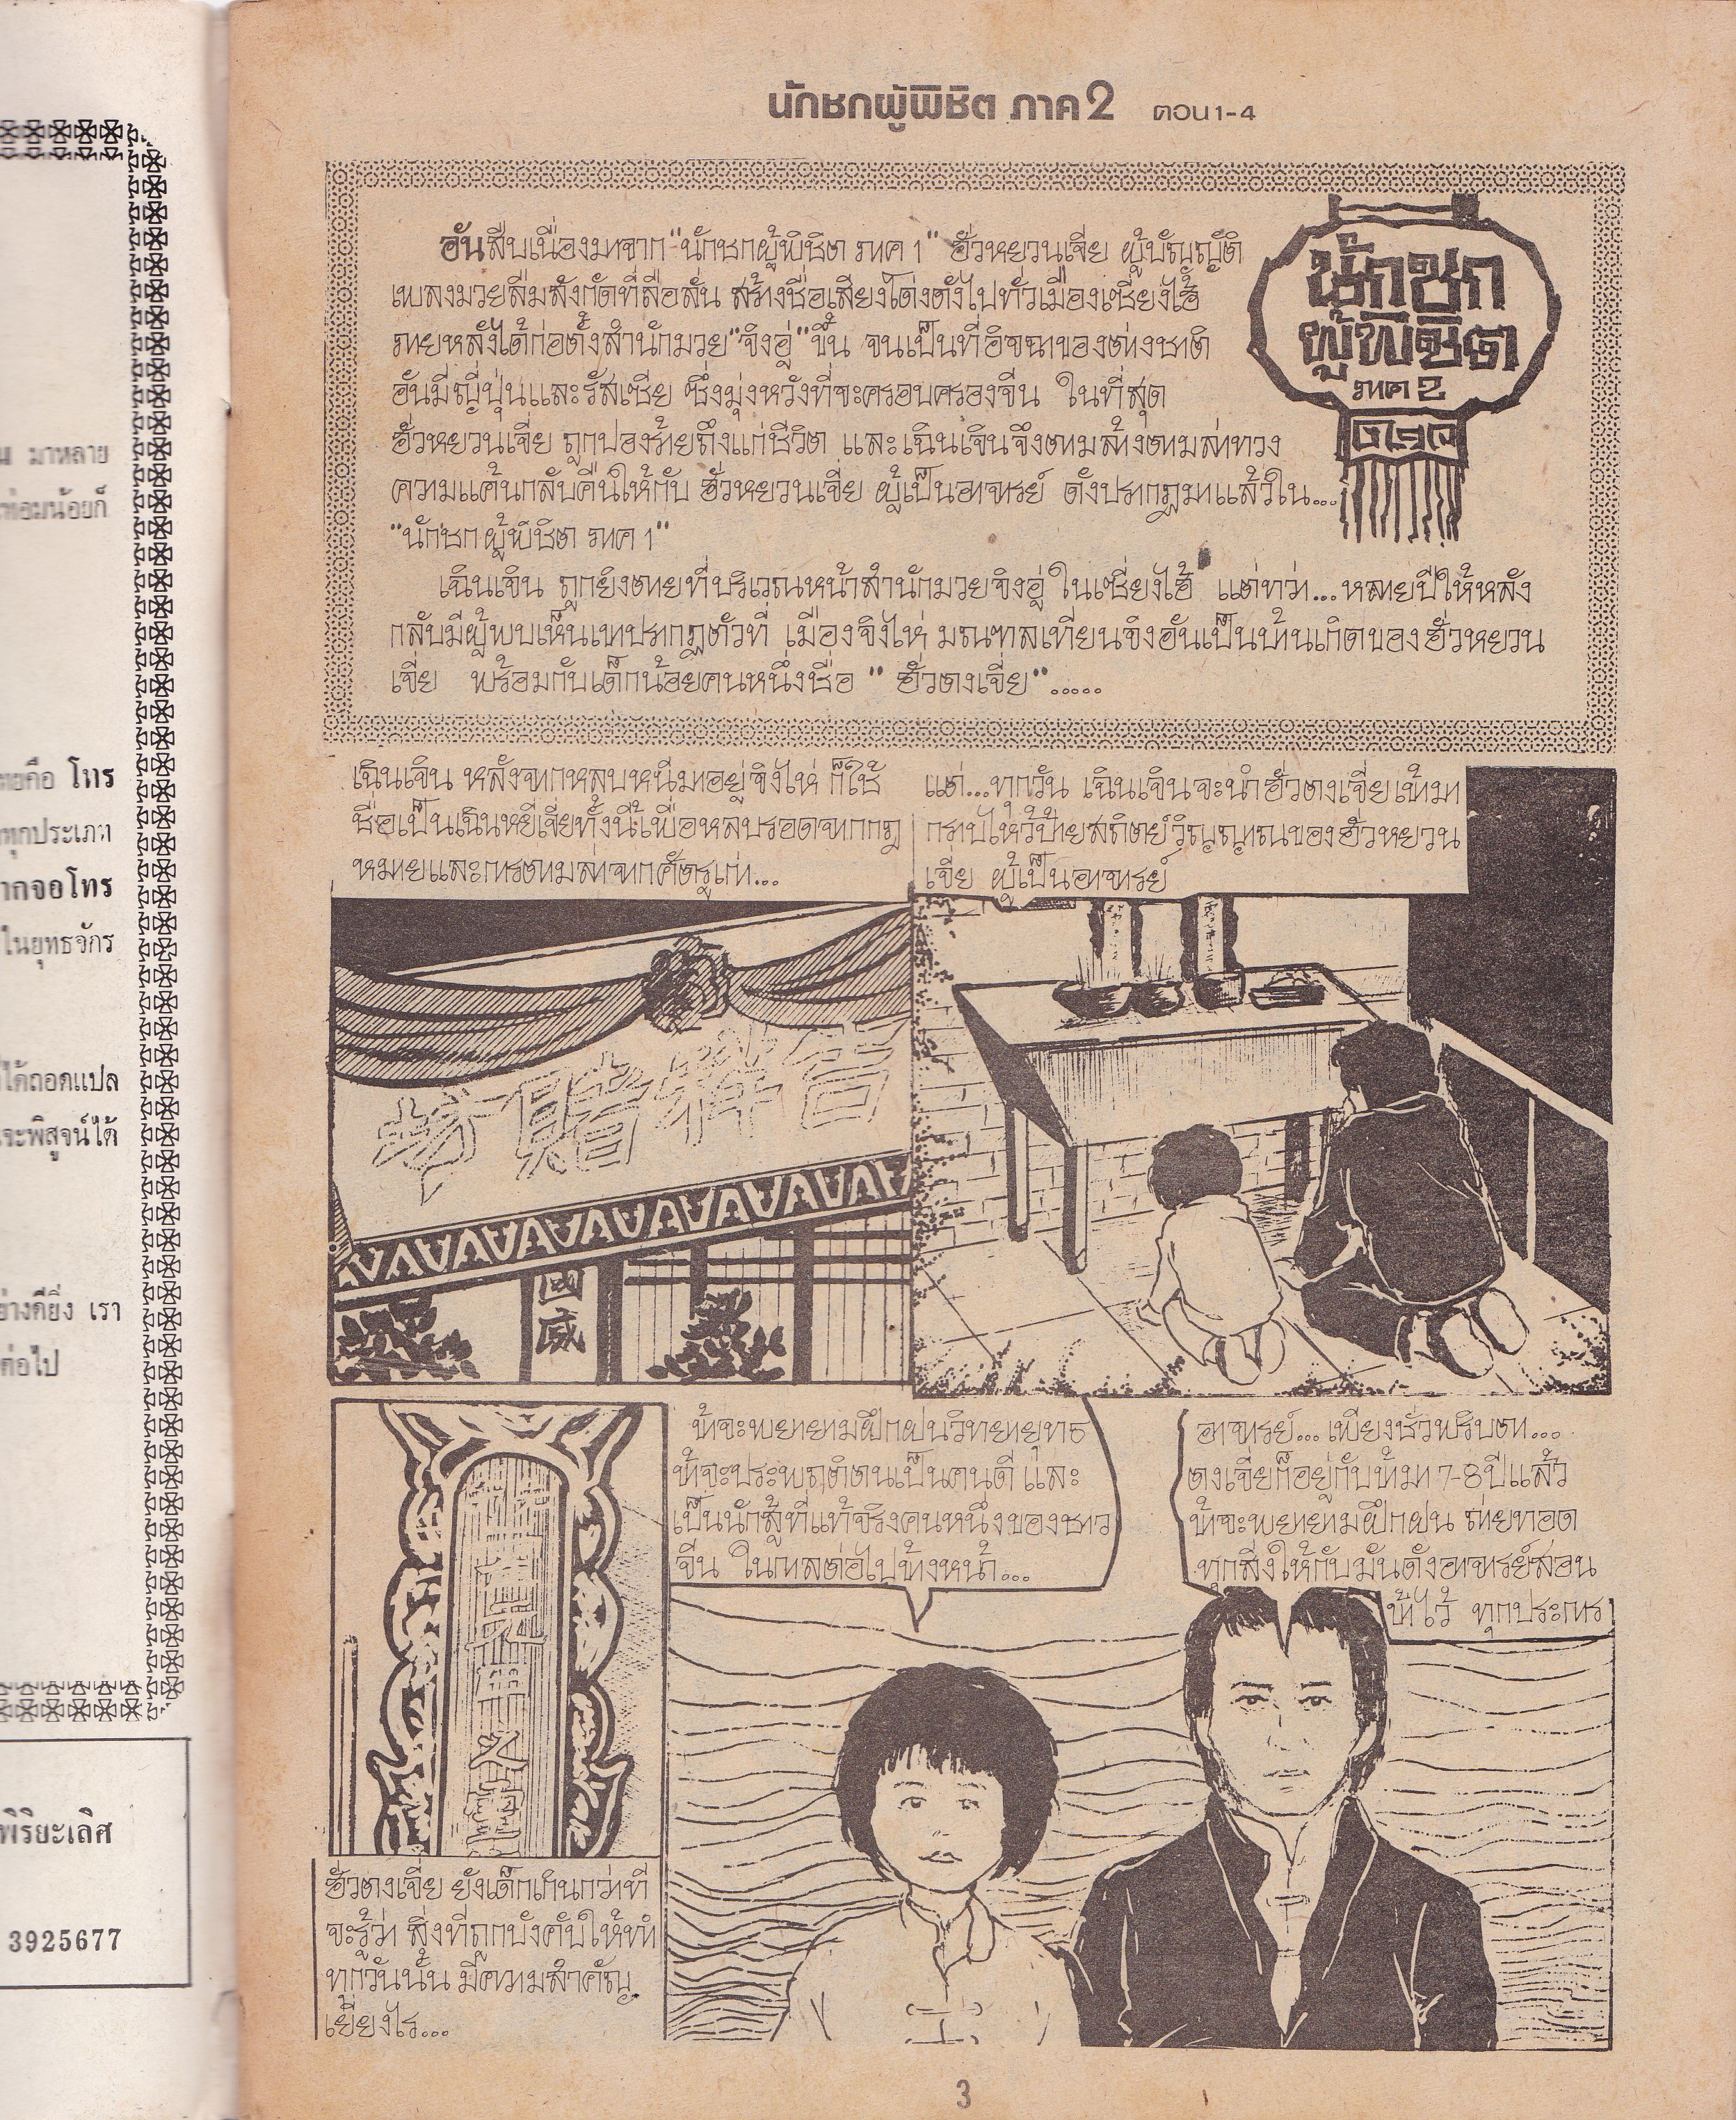 น มาหลาย
ท่อมน้อยก็
ทยคือ โทร
ทุกประเภท
ากจอโทร
ในยุทธจักร
ได้ถอดแปล
จะพิสูจน์ได้
ย่างดียิ่ง เรา
ต่อไป
พิริยะเลิศ
3925677
นักชกผู้พิชิต ภาค 2 ตอน 1-4
อันสืบเนื่องมาจาก "นักชกผู้พิชิต ภาค 1" ฮั่วหยวนเจี่ย ผู้บัญญัติ
เพลงมวยลืมสังกัดที่ลือลั่น สร้างชื่อเสียงโด่งดังไปทั่วเมืองเซี่ยงไฮ้
ภายหลังได้ก่อตั้งสำนักมวย "จิงอู่" ขึ้น จนเป็นที่อิจฉาของต่างชาติ
อันมีญี่ปุ่นและรัสเซีย ซึ่งมุ่งหวังที่จะครอบครองจีน ในที่สุด
ฮั่วหยวนเจี่ย ถูกปองร้ายถึงแก่ชีวิต และเฉินเจินจึงตามล้างตามล่าทวง
ความแค้นกลับคืนให้กับ ฮั่วหยวนเจี่ย ผู้เป็นอาจารย์ ดังปรากฏมาแล้วใน...
"นักชกผู้พิชิต ภาค 1"
เฉินเจิน ถูกยิงตายที่บริเวณหน้าสำนักมวยจิงอู่ ในเซี่ยงไฮ้ แต่ทว่า...หลายปีให้หลัง
กลับมีผู้พบเห็นเขาปรากฏตัวที่ เมืองจิงไห่ มณฑลเทียนจิงอันเป็นบ้านเกิดของฮั่วหยวน
เจี่ย พร้อมกับเด็กน้อยคนหนึ่งชื่อ " ฮั่วตงเจี่ย".....
นักชก
ผู้พิชิต
ภาค 2
เฉินเจิน หลังจากหลบหนีมาอยู่จิงไห่ ก็ใช้
ชื่อเป็นเฉินหยี่เจี่ยทั้งนี้เพื่อหลบรอดจากกฎ
หมายและการตามล่าจากศัตรูเก่า...
แต่...ทุกวัน เฉินเจินจะนำฮั่วตงเจี่ยเข้ามา
กราบไหว้ป้ายสถิตย์วิญญาณของฮั่วหยวน
เจี่ย ผู้เป็นอาจารย์
國
威
ข้าจะพยายามฝึกฝนวิทยายุทธ
ข้าจะประพฤติตนเป็นคนดี และ
เป็นนักสู้ที่แท้จริงคนหนึ่งของชาว
จีน ในกาลต่อไปข้างหน้า...
อาจารย์... เพียงชั่วพริบตา...
ตงเจี่ยก็อยู่กับข้ามา 7-8 ปีแล้ว
ข้าจะพยายามฝึกฝน ถ่ายทอด
ทุกสิ่งให้กับมันดังอาจารย์สอน
ข้าไว้ ทุกประการ
ฮั่วตงเจี่ย ยังเด็กเกินกว่าที่
จะรู้ว่า สิ่งที่ถูกบังคับให้ทำ
ทุกวันนั้น มีความสำคัญ
เยี่ยงไร...
3